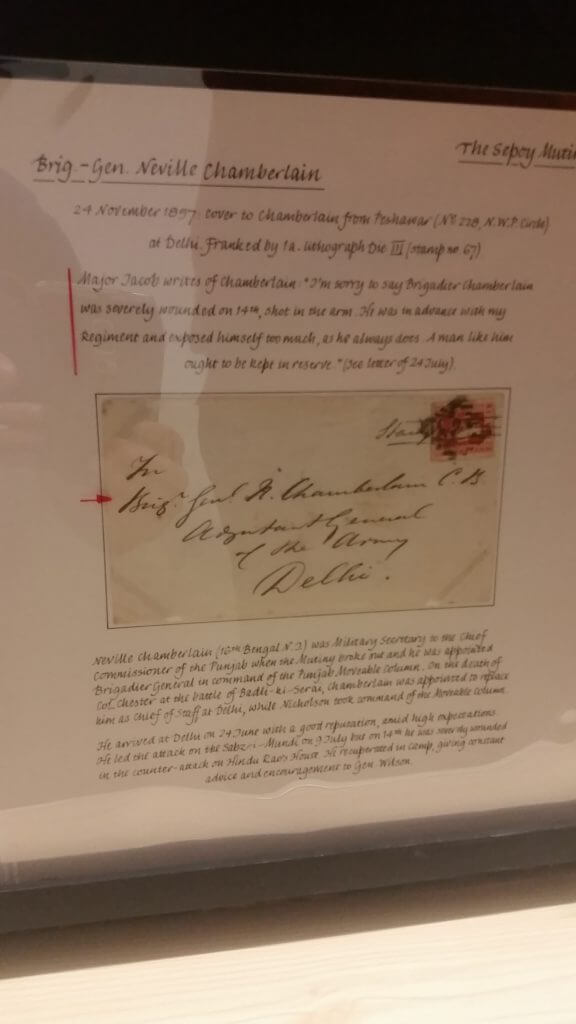 The Sepoy Mutin
Brig.-Gen. Neville Chamberlain
24 November 1857 cover to Chamberlain from Peshawar (No. 228, N.W.P. Circle)
at Delhi. Franked by 1a. lithograph Die III (stamp no. 67)
Major Jacob writes of Chamberlain: "I'm sorry to say Brigadier Chamberlain
was severely wounded on 14th, shot in the arm. He was in advance with my
Regiment and exposed himself too much, as he always does. A man like him
ought to be kept in reserve." (See letter of 24 July).
To
Brigr. Genl. N. Chamberlain C.B.
Adjutant General
of the Army
Delhi.
Neville Chamberlain (16th Bengal N.I.) was Military Secretary to the Chief
Commissioner of the Punjab when the Mutiny broke out and he was appointed
Brigadier General in command of the Punjab Moveable Column. On the death of
Col. Chester at the battle of Badli-ki-Serai, Chamberlain was appointed to replace
him as Chief of Staff at Delhi, while Nicholson took command of the Moveable Column.
He arrived at Delhi on 24 June with a good reputation, amid high expectations.
He led the attack on the Sabzi-Mundi on 9 July but on 14th he was severely wounded
in the counter-attack on Hindu Rao's House. He recuperated in camp, giving constant
advice and encouragement to Gen. Wilson.